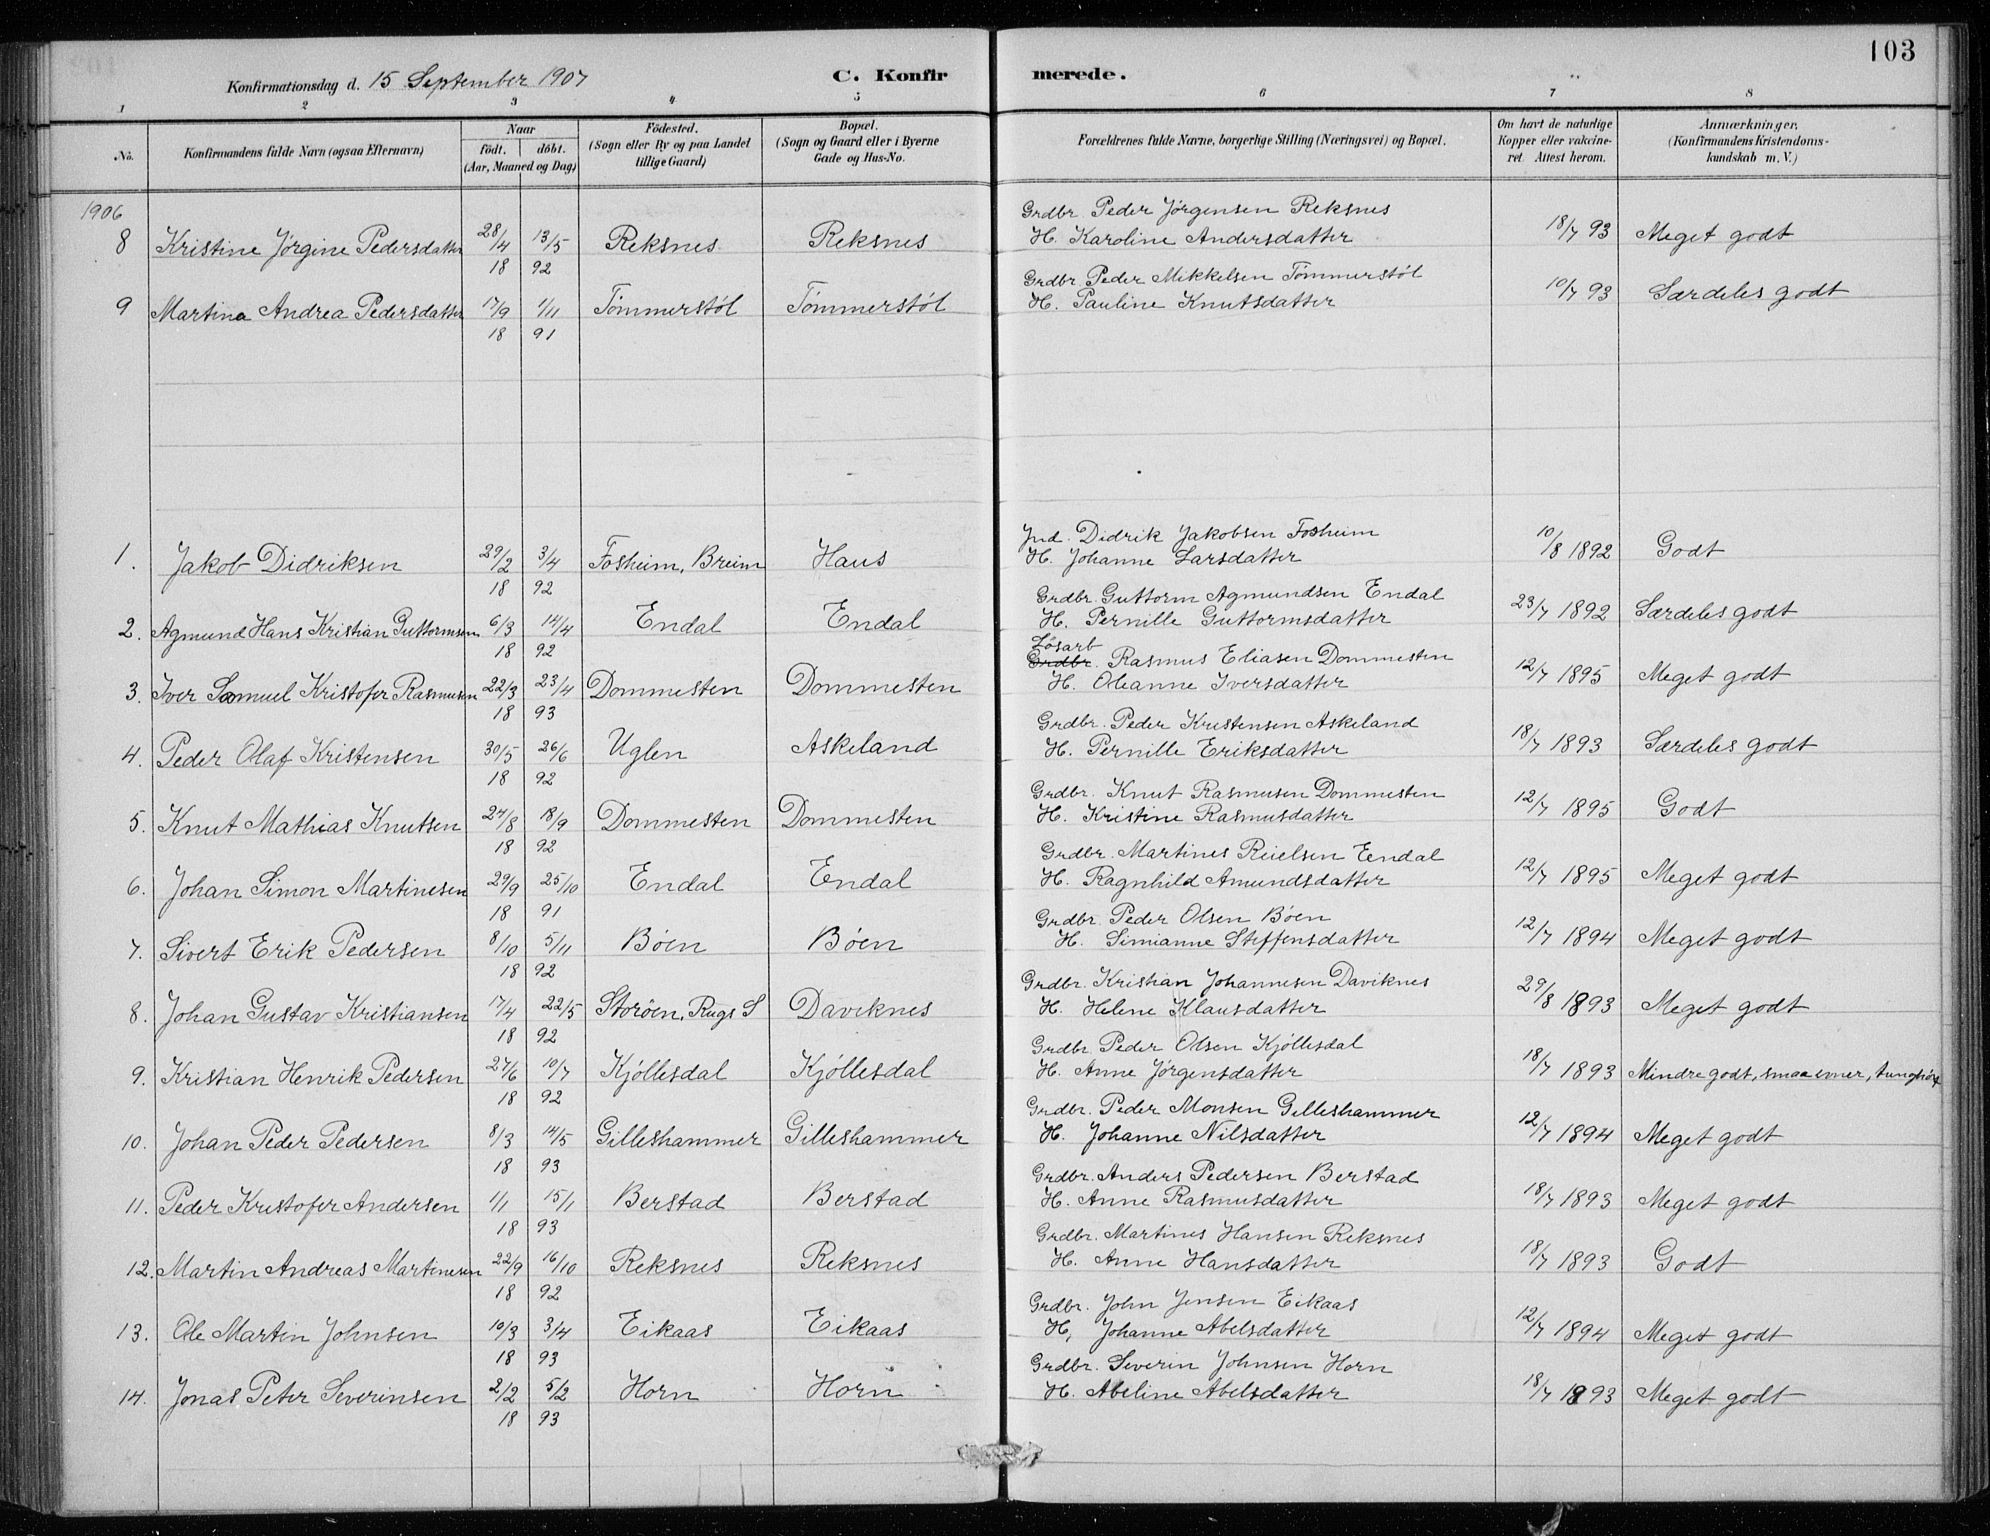 103
Konfirmationsdag d. 15 September 1907 C. Konfirmerede.
1 2 3 4 5 6 7 8
No. Konfirmandens fulde Navn (ogsaa Efternavn) Naar født. døbt. (Aar, Maaned og Dag) Fødested. (Sogn eller By og paa Landet tillige Gaard) Bopæl. (Sogn og Gaard eller i Byerne Gade og Hus-No. Forældrenes fulde Navne, borgerlige Stilling (Næringsvei) og Bopæl. Om havt de naturlige Kopper eller vakcineret. Attest herom. Anmærkninger. (Konfirmandens Kristendomskundskab m. V.)
1906
Grdbr. Peder Jørgensen Reksnes
8 Kristine Jørgine Pedersdatter 28/4 13/5 Reksnes Reksnes H. Karoline Andersdatter 18/7 93 Meget godt
18 92
Grdbr. Peder Mikkelsen Tømmerstøl
9 Martina Andrea Pedersdatter 17/9 1/11 Tømmerstøl Tømmerstøl H. Pauline Knutsdatter 10/7 93 Særdeles godt
18 91
Ind. Didrik Jakobsen Fosheim
1. Jakob Didriksen 29/2 3/4 Fosheim, Breim Haus H. Johanne Larsdatter 10/8 1892 Godt
18 92
Grdbr. Guttorm Agmundsen Endal
2. Agmund Hans Kristian Guttormsen 6/3 14/4 Endal Endal H. Pernille Guttormsdatter 23/7 1892 Særdeles godt
18 92
Løsarb
Grdbr. Rasmus Eliasen Dommesten
3. Iver Samuel Kristofer Rasmusen 22/3 23/4 Dommesten Dommesten H. Oleanne Iversdatter 12/7 1895 Meget godt
18 93
Grdbr. Peder Kristensen Askeland
4. Peder Olaf Kristensen 30/5 26/6 Uglen Askeland H. Pernille Eriksdatter 18/7 1893 Særdeles godt
18 92
Grdbr. Knut Rasmusen Dommesten
5. Knut Mathias Knutsen 24/8 18/9 Dommesten Dommesten H. Kristine Rasmusdatter 12/7 1895 Godt
18 92
Grdbr. Martines Reielsen Eendal
6. Johan Simon Martinesen 29/9 25/10 Endal Endal H. Ragnhild Amundsdatter 12/7 1895 Meget godt
18 91
Grdbr. Peder Olsen Bøen
7. Sivert Erik Pedersen 8/10 5/11 Bøen Bøen H. Simianne Steffensdatter 12/7 1894 Meget godt
18 92
Grdbr. Kristian Johannesen Daviknes
8. Johan Gustav Kristiansen 17/4 22/5 Storøen, Rugs S Daviknes H. Helene Klausdatter 29/8 1893 Meget godt
18 92
Grdbr. Peder Olsen Kjøllesdal
9. Kristian Henrik Pedersen 27/6 10/7 Kjøllesdal Kjøllesdal H. Anne Jørgensdatter 18/7 1893 Mindre godt, smaa evner, tunghørt
18 92
Grdbr. Peder Monsen Gilleshammer
10. Johan Peder Pedersen 8/3 14/5 Gilleshammer Gilleshammer H. Johanne Nilsdatter 12/7 1894 Meget godt
18 93
Grdbr. Anders Pedersen Berstad
11. Peder Kristofer Andersen 1/1 15/1 Berstad Berstad H. Anne Rasmusdatter 18/7 1893 Meget godt
18 93
Grdbr. Martines Hansen Reksnes
12. Martin Andreas Martinesen 22/9 16/10 Reksnes Reksnes H. Anne Hansdatter 18/7 1893 Godt
18 92
Grdbr. John Jensen Eikaas
13. Ole Martin Johnsen 10/3 3/4 Eikaas Eikaas H, Johanne Abelsdatter 12/7 1894 Meget godt
18 93
Grdbr. Severin Johnsen Horn
14. Jonas Peter Severinsen 2/2 5/2 Horn Horn H. Abeline Abelsdatter 18/7 1893 Meget godt
18 93